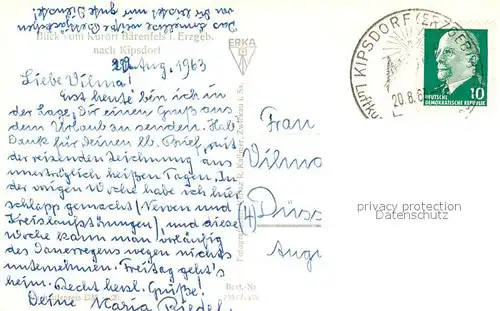 Blick vom Kurort Bärenfels i. Erzgeb.
nach Kipsdorf
20. Aug. 1963
Liebe Vilma!
Erst heute bin ich in
der Lage, Dir einen Gruß aus
dem Urlaub zu senden. Hab
Dank für Deinen lb. Brief, mit
der reizenden Zeichnung aus
unerträglich heißen Tagen. In
der vorigen Woche habe ich hier
schlapp gemacht (Nerven und
Kreislaufstörungen), und diese
Woche kann man vorläufig
des Dauerregens wegen nichts
unternehmen. Freitag geht's
heim. Recht herzl. Grüße!
Deine Maria Riedel
ERKA
Best.-Nr.
KIPSDORF (ERZGEB
20.8.6
10
DEUTSCHE
DEMOKRATISCHE REPUBLIK
Frau
Vilma
(4) Düss
Aug
privacy protection
Datenschutz